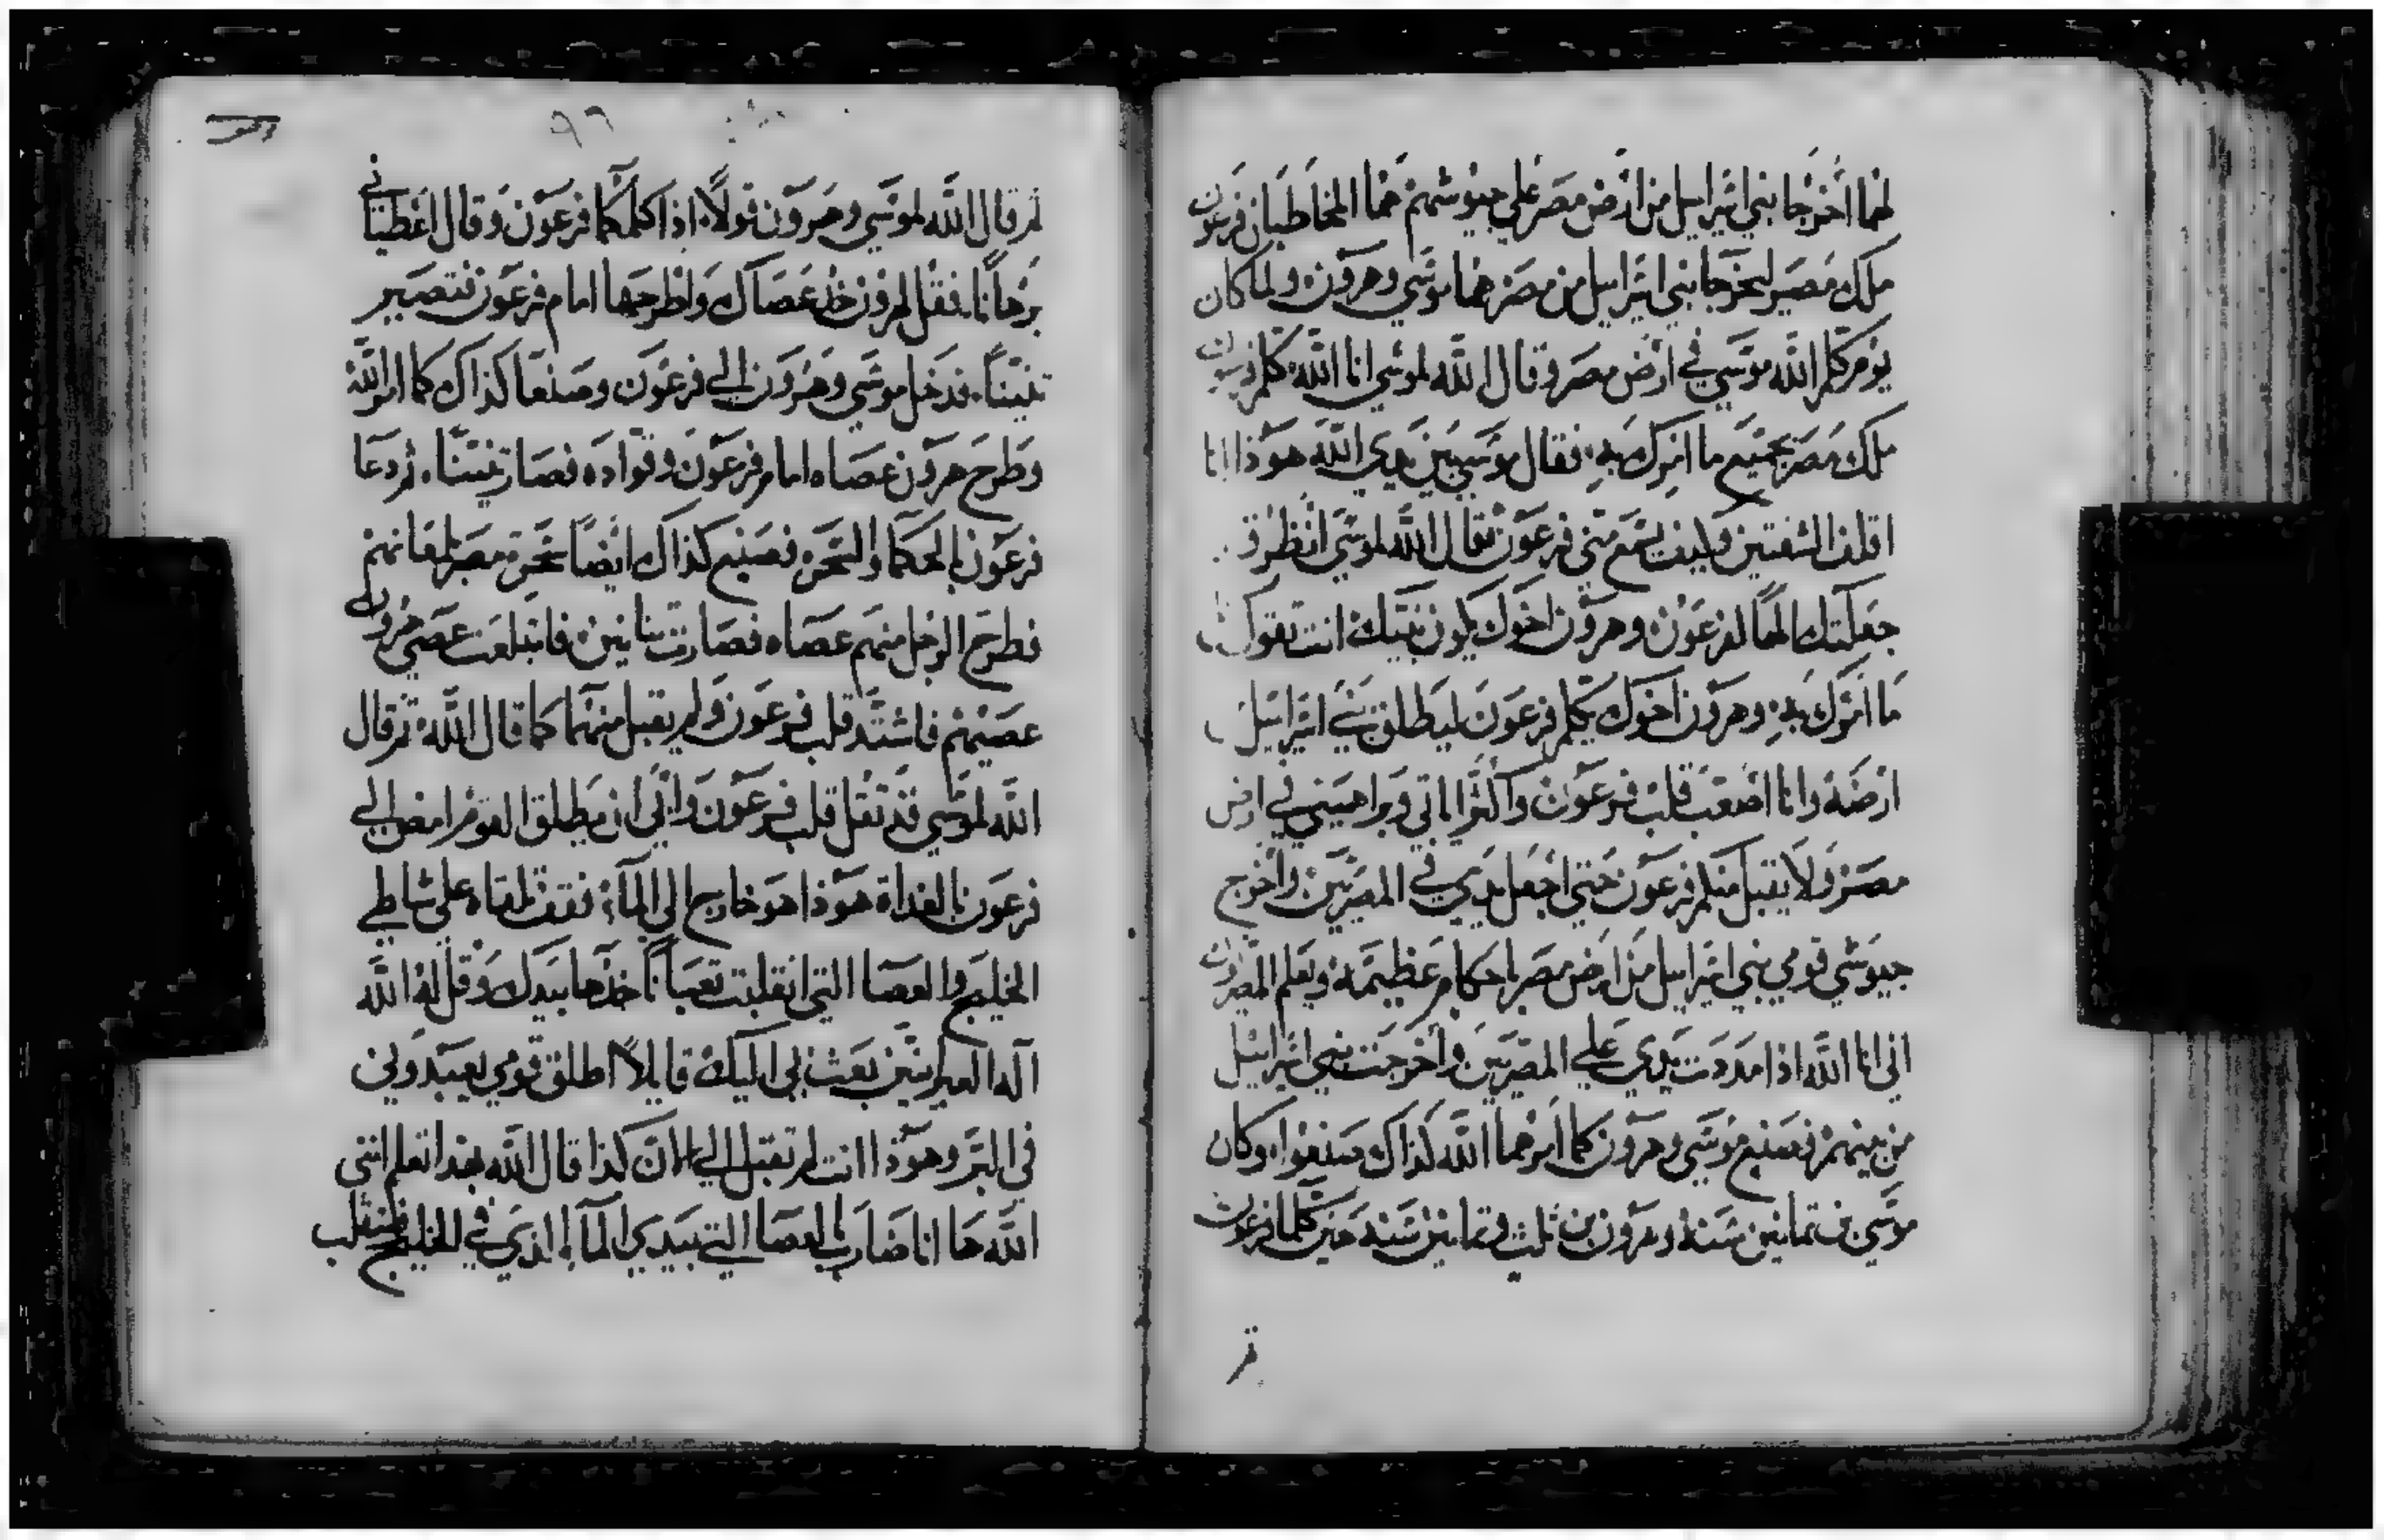 لهما اخرجا بني اسراييل من ارض مصر علي جيوشهم هما المخاطبان فرعون
ملك مصر ليخرجا بني اسراييل من مصر هما موسي وهرون ولما كان
يوم كلم الله موسي في ارض مصر وقال الله لموسي انا الله كلم فرعون
ملك مصر بجميع ما امرك به فقال موسي بين يدي الله هوذا انا
اقلف الشفتين فكيف يسمع مني فرعون فقال الله لموسي انظر قد
جعلتك الهًا لفرعون وهرون اخوك يكون نبيك انت تقول
ما امرك به وهرون اخوك يكلم فرعون ليطلق بني اسراييل
ارضه وانا اصعب قلب فرعون واكثر اياتي وبراهيني في ارض
مصر ولا يقبل منكم فرعون حتي اجعل يدي في المصريين واخرج
جيوشي قومي بني اسراييل من ارض مصر باحكام عظيمة ويعلم المصريون
اني انا الله اذا مددت يدي علي المصريين واخرجت بني اسراييل
من بينهم فصنع موسي وهرون كما امرهما الله كذاك صنعوا وكان
موسي بن ثمانين سنة وهرون بن ثلث وثمانين سنة حين كلما فرعون
ثم
٩٦
ثم قال الله لموسي وهرون قولًا اذا كلمكما فرعون وقال اعطياني
برهانًا فقل لهرون خذ عصاك واطرحها امام فرعون فتصير
تنينًا فدخل موسي وهرون الي فرعون وصنعا كذاك كما امر الله
وطرح هرون عصاه امام فرعون وقواده فصارت تنينًا ثم دعا
فرعون بالحكما والسحرة فصنع كذاك ايضًا سحرة مصر بلمعانهم
فطرح الرجل منهم عصاه فصارت تنانين فابتلعت عصي هرون
عصيهم فاشتد قلب فرعون ولم يقبل منهما كما قال الله ثم قال
الله لموسي قد ثقل قلب فرعون وابي ان يطلق القوم امض الي
فرعون بالغداة هوذا هو خارج الي المآء فقف تلقاه علي شاطي
الخليج والعصا التي انقلبت ثعبانًا خذها بيدك وقل له الله
اله العبرانيين بعثني اليك قايلًا اطلق قومي يعبدوني
في البر وهوذا انت لم تقبل الي الان كذا قال الله بهذا تعلم انني
الله ها انا ضارب بالعصا التي بيدي المآء الذي في الخليج فينقلب